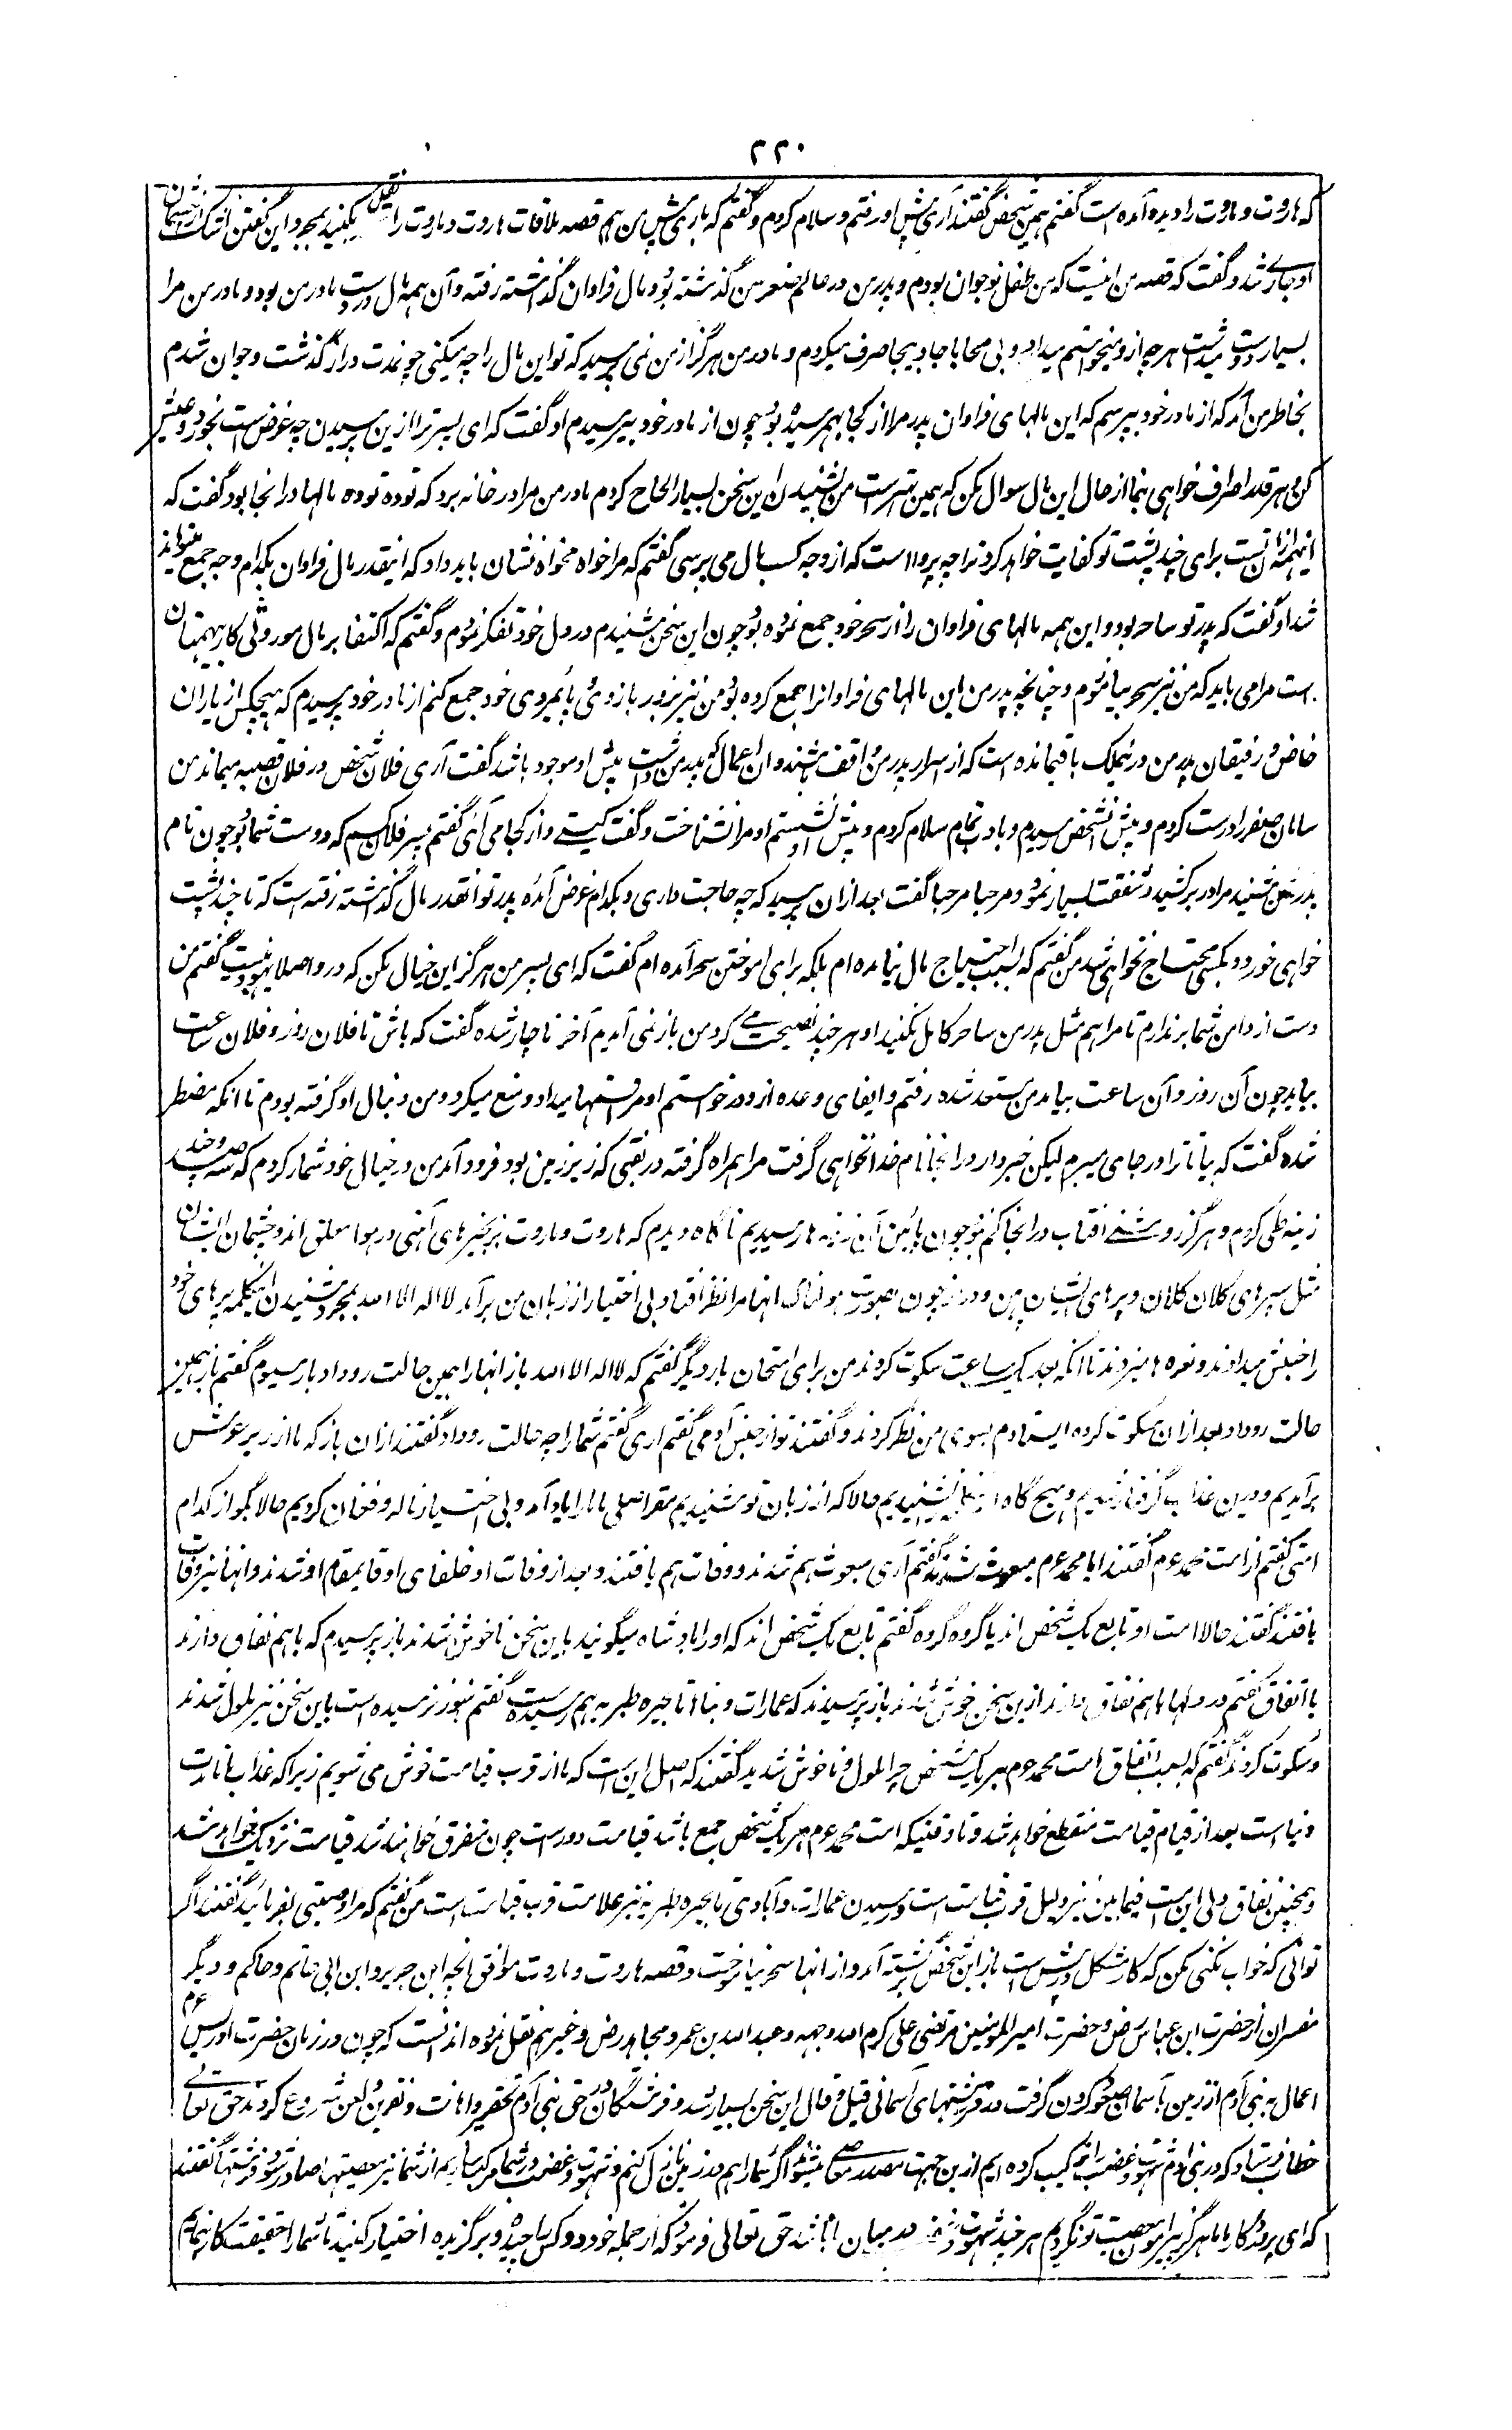 ۲۲۰
که هاروت و ماروت را دیده آمده است گفتم همین شخص گفتند آری پیش او رفتم و سلام کردم و گفتم که باری پیش من هم قصه ملاقات هاروت و ماروت را نقل بکنید بمجرد این گفتن اشک از چشمان
او جاری شد و گفت که قصه من اینست که من طفل نوجوان بودم و پدر من در عالم صغر من گذشته بود و مال فراوان گذاشته رفته و آن همه مال در دست مادر من بود و مادر من مرا
بسیار دوست میداشت هر چه ازو میخواستم میداد و بی محابا جا و بیجا صرف میکردم و مادر من هرگز از من نمی پرسید که تو این مال را چه میکنی چون مدت دراز گذشت و جوان شدم
بخاطر من آمد که از مادر خود بپرسم که این مالهای فراوان پدر مرا از کجا بهم رسیده بود چون از مادر خود پرسیدم او گفت که ای پسر ترا ازین پرسیدن چه غرض است بخور و عیش
کن و هر قدر اصراف خواهی نما از حال این مال سوال مکن که همین بهتر است من بشنیدن این سخن بسیار الحاح کردم مادر من مرا در خانه برد که توده توده مالها درانجا بود گفت که
اینهمه ازان تست برای چند پشت تو کفایت خواهد کرد ترا چه پروا است که از وجه کسب مال می پرسی گفتم که مرا خواه مخواه نشان باید داد که اینقدر مال فراوان بکدام وجه جمع میتواند
شد او گفت که پدر تو ساحر بود و این همه مالهای فراوان را از سحر خود جمع نموده بود چون این سخن شنیدم در دل خود تفکر نمودم و گفتم که اکتفا بر مال موروثی کار بیهمتان
است مرا می باید که من نیز سحر بیاموزم و چنانچه پدر من این مالهای فراوانرا جمع کرده بود من نیز بزور بازوی و پایمردی خود جمع کنم از مادر خود پرسیدم که هیچکس از یاران
خاص و رفیقان پدر من درین ملک باقیمانده است که از اسرار پدر من واقف باشد و آن اعمال که پدر من داشت پیش او موجود باشد گفت آری فلان شخص در فلان قصبه میماند من
سامان سفر را درست کردم و پیش آنشخص رسیدم و با ادب تمام سلام کردم و پیش او نشستم او مرا نشناخت و گفت کیستی و از کجا می آئی گفتم پسر فلان کسم که دوست شما بود چون نام
پدر من شنید مرا در بر کشید و شفقت بسیار نمود و مرحبا مرحبا گفت بعد ازان پرسید که چه حاجت داری و بکدام غرض آمده پدر تو انقدر مال گذاشته رفته است که تا چند پشت
خواهی خورد و بکسی محتاج نخواهی شد من گفتم که بسبب احتیاج مال نیامده ام بلکه برای اموختن سحر آمده ام گفت که ای پسر من هرگز این خیال مکن که درو اصلا بهبود نیست گفتم من
دست از دامن شما بر ندارم تا مرا هم مثل پدر من ساحر کامل نکنید او هر چند نصیحت می کرد من باز نمی آمدم آخر ناچار شده گفت که باش تا فلان روز و فلان ساعت
بیاید چون آن روز و آن ساعت بیامد من مستعد شده رفتم و ایفای وعده ازو درخواستم او مرا قسمها میداد و منع میکرد و من دنبال او گرفته بودم تا انکه مضطر
شده گفت که بیا تا ترا در جای میبرم لیکن خبردار درانجا نام خدا نخواهی گرفت مرا همراه گرفته در نقبی که زیر زمین بود فرود آمد من در خیال خود شمار کردم که سه صد و چند
زینه طی کردم و هرگز روشنی افتاب درانجا کم نبود چون پائین آن زینه ها رسیدیم ناگاه دیدم که هاروت و ماروت بزنجیرهای آهنی در هوا معلق اند و چشمان ایشان
مثل سپرهای کلان کلان و پرهای ایشان پهن و دراز چون صورت هولناک انها مرا نظر افتاد بی اختیار از زبان من برآمد لا اله الا الله بمجرد شنیدن اینکلمه پرهای خود
را جنبش میدادند و نعره ها میزدند تا انکه بعد یکساعت سکوت کردند من برای امتحان بار دیگر گفتم که لا اله الا الله باز انها را همین حالت رو داد بار سیوم گفتم باز همین
حالت رو داد بعد ازان سکوت کرده ایستادم بسوی من نظر کردند و گفتند تو از جنس آدمی گفتم اری گفتم شما را چه حالت رو داد گفتند ازان باز که ما از زیر عرش
برآمدیم و درین عذاب گرفتار شدیم و هیچ گاه این کلمه نشنیدیم حالا که از زبان تو شنیدیم مقر اصلی ما را یاد آمد و بی اختیار ناله و فغان کردیم حالا بگو از کدام
امتی گفتم از امت محمد عم گفتند ایا محمد عم مبعوث شدند گفتم آری مبعوث هم شدند و وفات هم یافتند و بعد از وفات او خلفای او قایمقام او شدند و انها نیز وفات
یافتند گفتند حالا امت او تابع یک شخص اند یا گروه گروه گفتم تابع یک شخص اند که او را بادشاه میگویند باین سخن ناخوش شدند باز پرسیدم که باهم نفاق دارند
یا اتفاق گفتم در دلها باهم نفاق دارند ازین سخن خوش شدند باز پرسیدند که عمارات و بنا تا بحیره طبریه هم رسیده است گفتم هنوز نرسیده است باین سخن نیز ملول شدند
و سکوت کردند گفتم که بسبب اتفاق امت محمد عم بر یک شخص چرا ملول و ناخوش شدید گفتند که اصل این است که ما از قرب قیامت خوش می شویم زیرا که عذاب ما تا مدت
دنیا است بعد از قیام قیامت منقطع خواهد شد و تا وقتیکه امت محمد عم بر یک شخص جمع باشد قیامت دور است چون متفرق خواهند شد قیامت نزدیک خواهد شد
و همچنین نفاق دلی این امت فیمابین نیز دلیل قرب قیامت است و رسیدن عمارات و آبادی تا بحیره طبریه نیز علامت قرب قیامت است من گفتم که مرا وصیتی بفرمائید گفتند اگر
توانی که خواب نکنی مکن که کار مشکل در پیش است باز این شخص برگشته آمد و از انها سحر نیاموخت و قصه هاروت و ماروت موافق انچه ابن جریر و ابن ابی حاتم و حاکم و دیگر
مفسران از حضرت ابن عباس رض و حضرت امیر المومنین مرتضی علی کرم الله وجهه و عبد الله بن عمر و مجاهد رض و غیرهم نقل نموده اند انست که چون در زمان حضرت ادریس عم
اعمال بد بنی آدم از زمین با سمان صعود کردن گرفت در فرشتهای آسمانی قیل و قال این سخن بسیار شد و فرشتگان در حق بنی آدم تحقیر و اهانت و نفرین و لعن شروع کردند حق تعالی
خطاب فرستاد که در بنی آدم شهوت و غضب را ترکیب کرده ایم ازین جهت مصدر معاصی میشوند اگر شما را هم در زمین نازل کنم و شهوت و غضب در شما مرکب سازیم از شما نیز معصیتها صادر شود فرشتها گفتند
که ای پروردگار ما ما هرگز پیرامون معصیت تو نگردیم هر چند شهوت و غضب در میان ما باشد حق تعالی فرمود که از جمله خود دو کس را چیده و برگزیده اختیار کنید تا شما را حقیقت کار نمایم